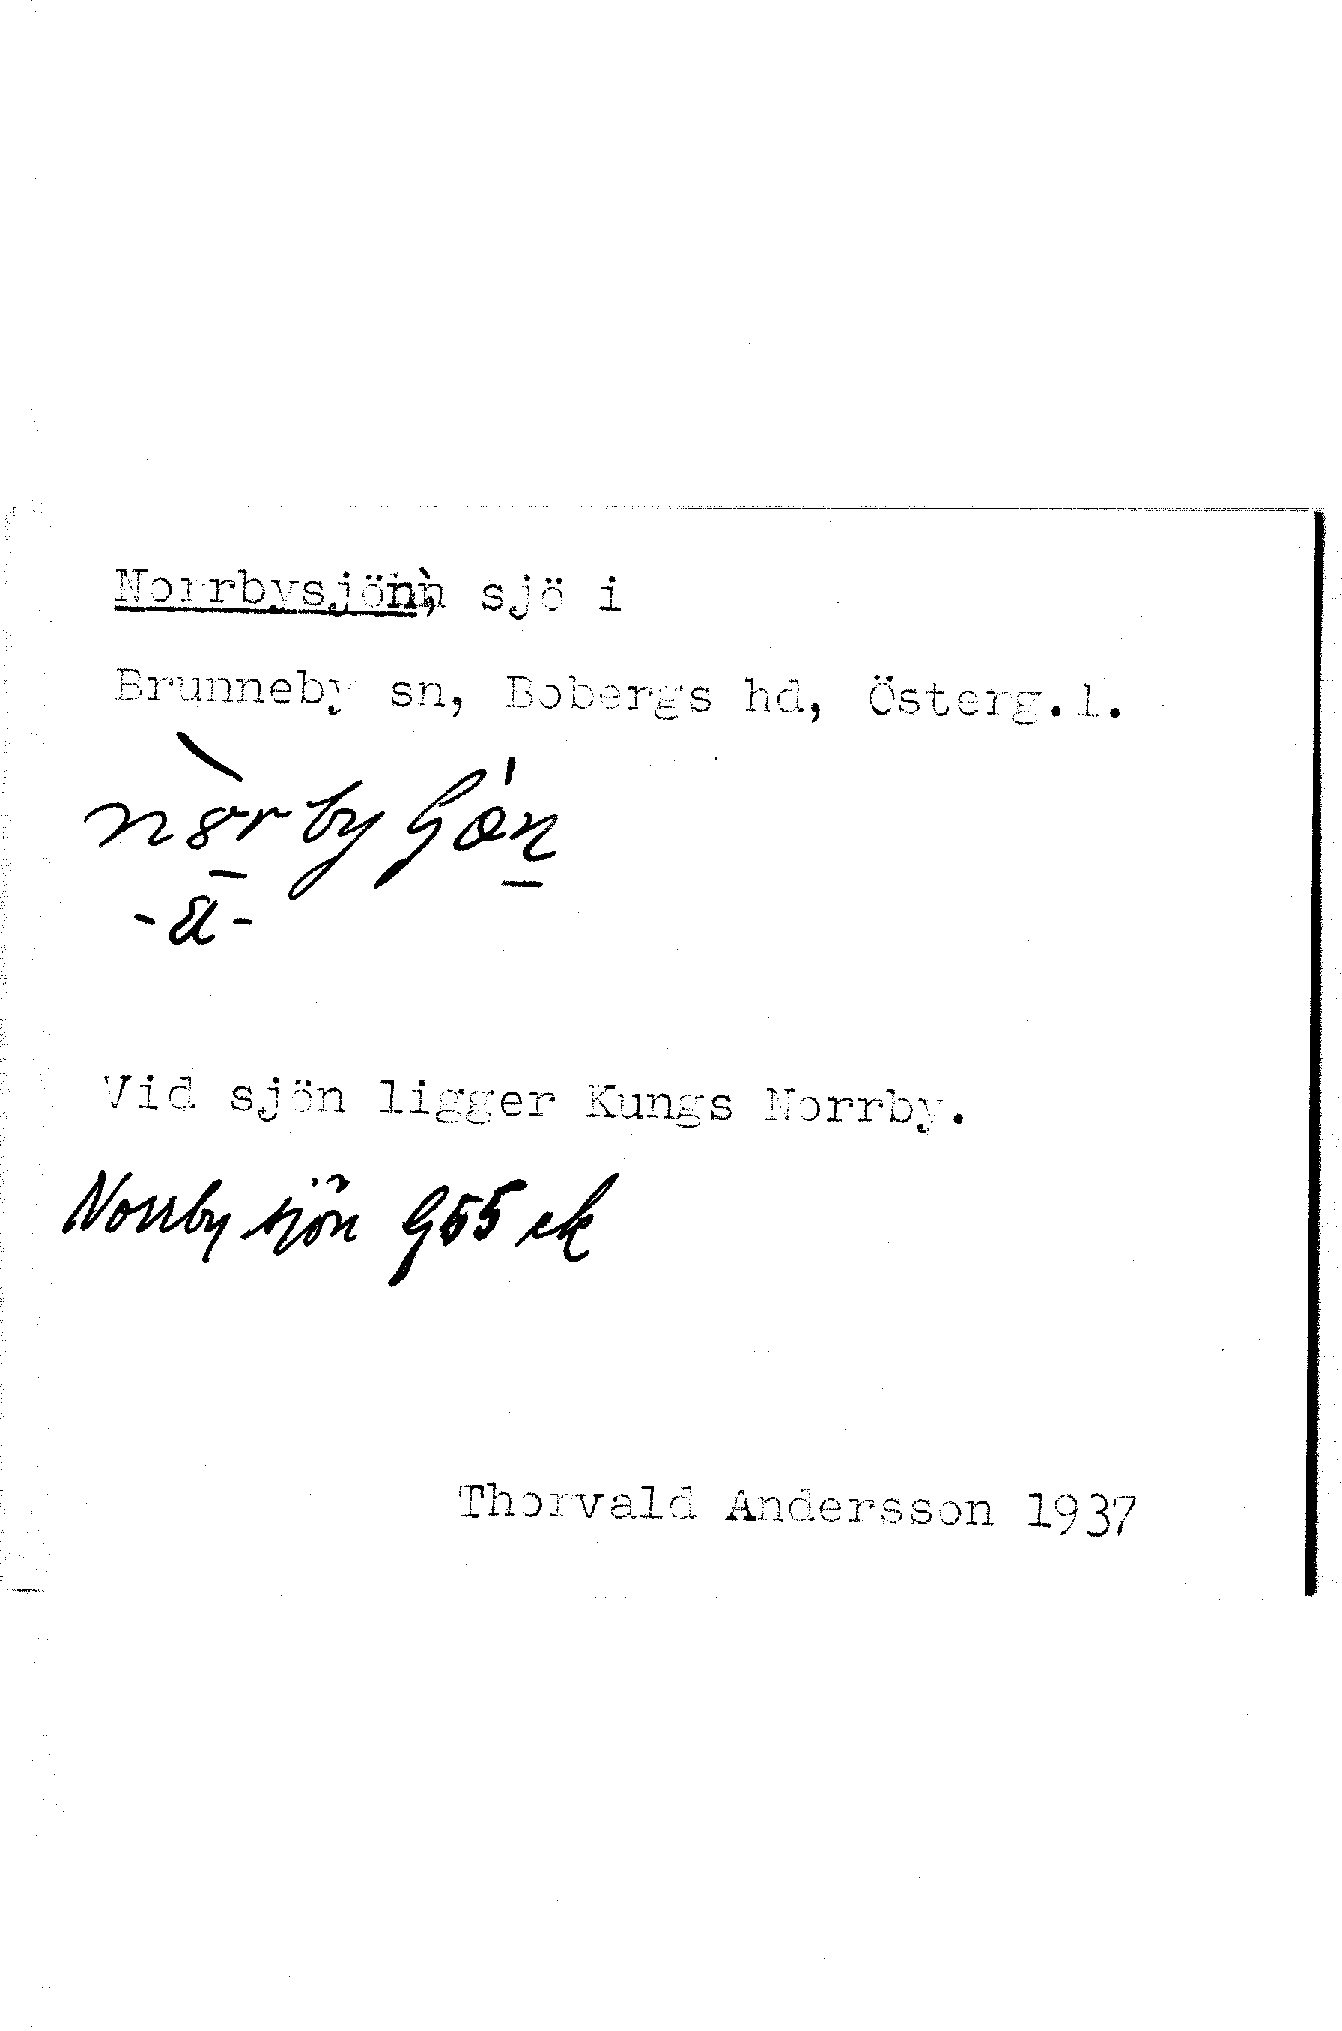 Norrbysjön, sjö i
Brunneby sn, Bobergs hd, Österg.l.
-a-
Vid sjön ligger Kungs Norrby.
Norrby sjön G55 ek
Thorvald Andersson 1937